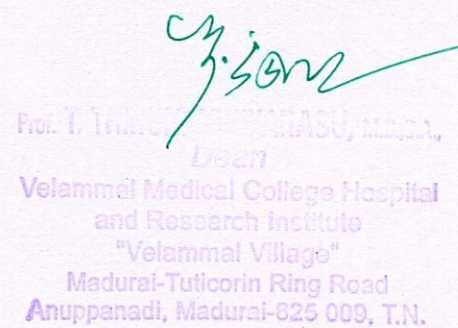 Prof. T.
Dean
Velammal Medical College Hospital
and Research Institute
"Velammal Village"
Madurai-Tuticorin Ring Road
Anuppanadi, Madurai-625 009. T.N.